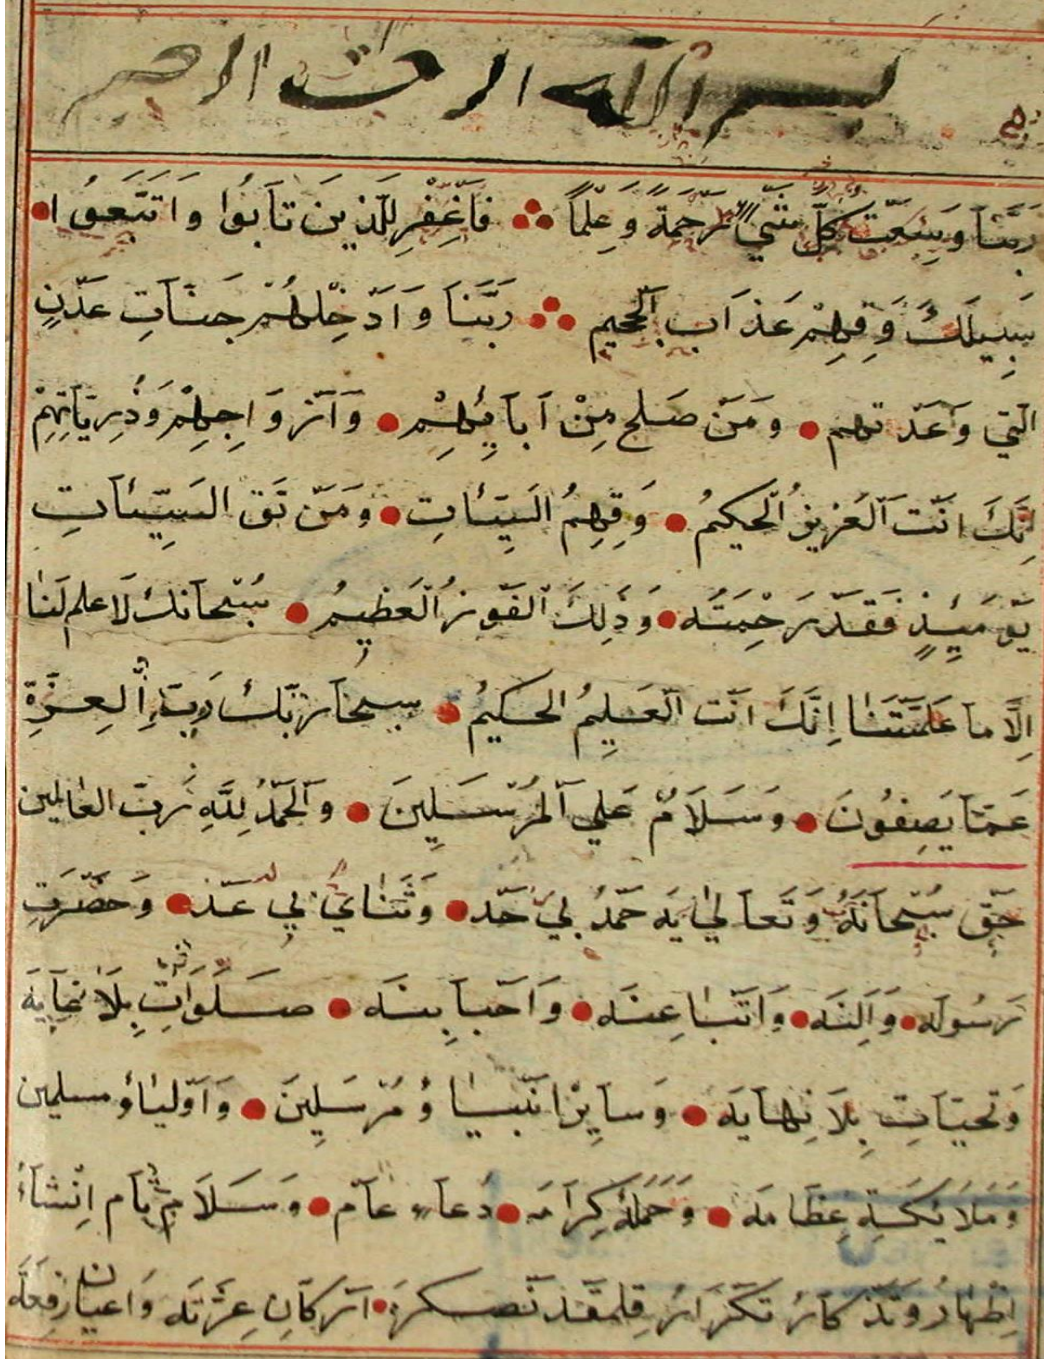 بسم الله الرحمن الرحيم
رَبَّنَا وَسِعْتَ كُلَّ شَيْءٍ رَحْمَةً وَعِلْمًا فَاغْفِرْ لِلَّذِينَ تَابُوا وَاتَّبَعُوا
سَبِيلَكَ وَقِهِمْ عَذَابَ الْجَحِيمِ رَبَّنَا وَادْخِلْهُمْ جَنَّاتِ عَدْنٍ
الَّتِي وَعَدْتَهُم وَمَنْ صَلَحَ مِنْ اَبَائِهِمْ وَاَزْوَاجِهِمْ وَذُرِّيَّاتِهِمْ
اِنَّكَ اَنْتَ الْعَزِيزُ الْحَكِيمُ وَقِهِمُ السَّيِّئَاتِ وَمَنْ تَقِ السَّيِّئَاتِ
يَوْمَئِذٍ فَقَدْ رَحِمْتَهُ وَذَلِكَ الْفَوْزُ الْعَظِيمُ سُبْحَانَكَ لَا عِلْمَ لَنَا
اِلَّا مَا عَلَّمْتَنَا اِنَّكَ اَنْتَ الْعَلِيمُ الْحَكِيمُ سبحان رَبِّكَ رَبِّ الْعِزَّةِ
عَمَّا يَصِفُونَ وَسَلَامٌ عَلَي الْمُرْسَلِينَ وَالْحَمْدُ لِلَّهِ رَبِّ الْعَالَمِين
حَقْ سُبْحَانَهُ وَتَعَالَي يَه حَمْدُ بِي حَدْ وَثَنَايُ بِي عَدْ وَحَضْرَتِ
رَسُولَه وَاَلِنَه وَاَتْبَاعِنَه وَاَحْبَابِنَه صَلَوَاتِ بِلَا غَايَه
وَتَحِيَّاتِ بِلَا نِهَايَه وَسَايِرْ اَنْبِيَا وُ مُرْسَلِينَ وَاَوْلِيَاؤُ مسلمين
وَمَلَايِكَهِ عِظَامَه وَحَمَلَهُ كِرَامَه دُعَاءِ عَامْ وَسَلَامِ اِنْشَاءُ
اِظْهَارُ وتَذْكَارُ تَكْرَارُ اَرْكَانِ عِزَّتَه وَاَعْيَانِ رِفْعَتَه